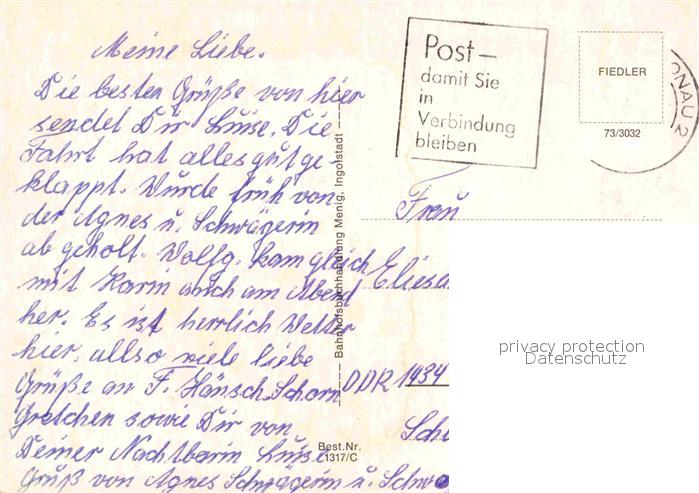 Meine Liebe.
Die besten Grüße von hier
sendet Dir Luise. Die
Fahrt hat alles gut ge-
klappt. Wurde früh von
der Agnes u. Schwägerin
ab geholt. Wolfg. kam gleich
mit Karin auch am Abend
her. Es ist herrlich Wetter
hier, allso viele liebe
Grüße an F. Hänsch Schorn
Gretchen sowie Dir von
Deiner Nachbarin Luise
Gruß von Agnes Schwägerin u. Schwa
Bahnhofsbuchhandlung Menig, Ingolstadt
Best.Nr.
L1317/C
Post –
damit Sie
in
Verbindung
bleiben
FIEDLER
73/3032
ONAU 2
Frau
Elisa
DDR 1434
Sch
privacy protection
Datenschutz